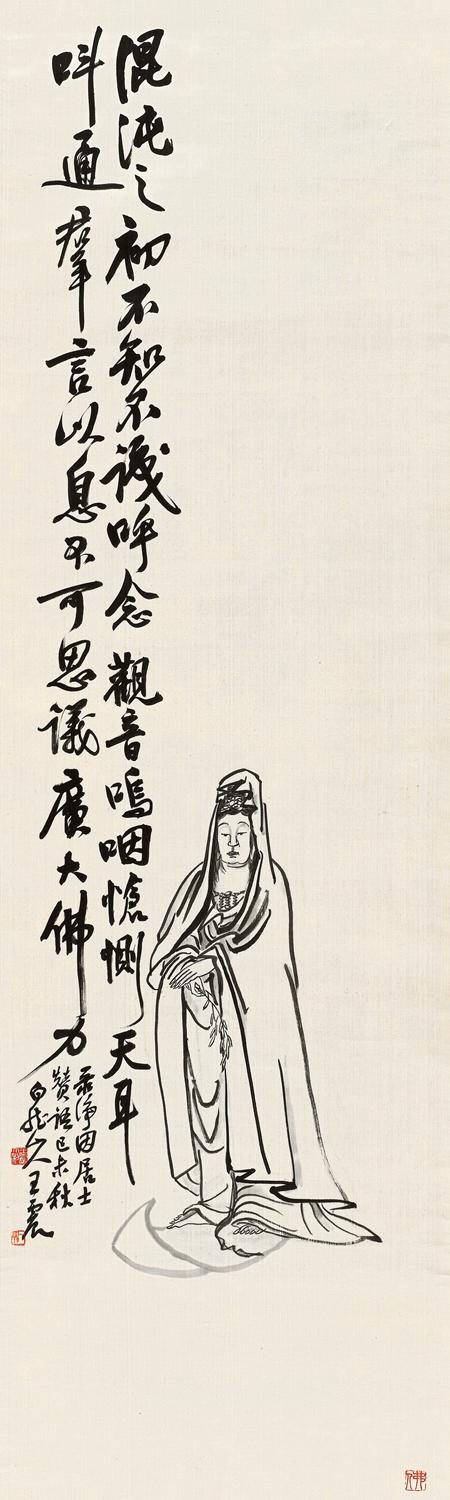 混沌之初不知不識呼念觀音嗚咽愴惻天耳
叫通群言以息不可思議廣大佛力
录淨因居士
贊語己未秋
白龍山人王震
佛